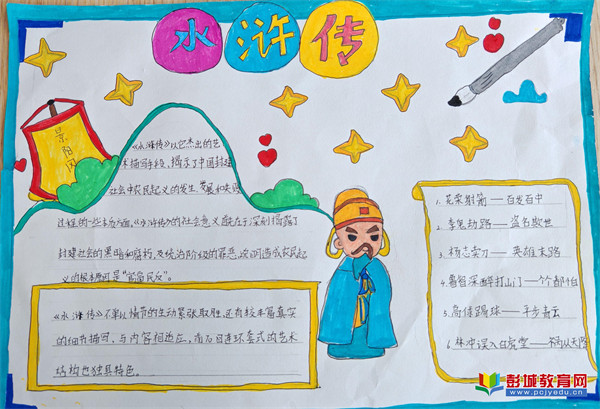 水浒传
景阳冈
《水浒传》以它杰出的艺
术描写手段，揭示了中国封建
社会中农民起义的发生、发展和失败
过程的一些本质方面。《水浒传》的社会意义在于深刻揭露了
封建社会的黑暗和腐朽，及统治阶级的罪恶，说明造成农民起
义的根本原因是“官逼民反”。
《水浒传》不单以情节的生动紧张取胜，还有较丰富真实
的细节描写，与内容相适应，而
连环套式的艺术
结构也独具特色。
1. 花荣射箭——百发百中
2. 李鬼劫路——盗名欺世
3. 杨志卖刀——英雄末路
4. 鲁智深醉打山门——个个都怕
5. 高俅踢球——平步青云
6. 林冲误入白虎堂——
彭城教育网
www.pcjyedu.cn